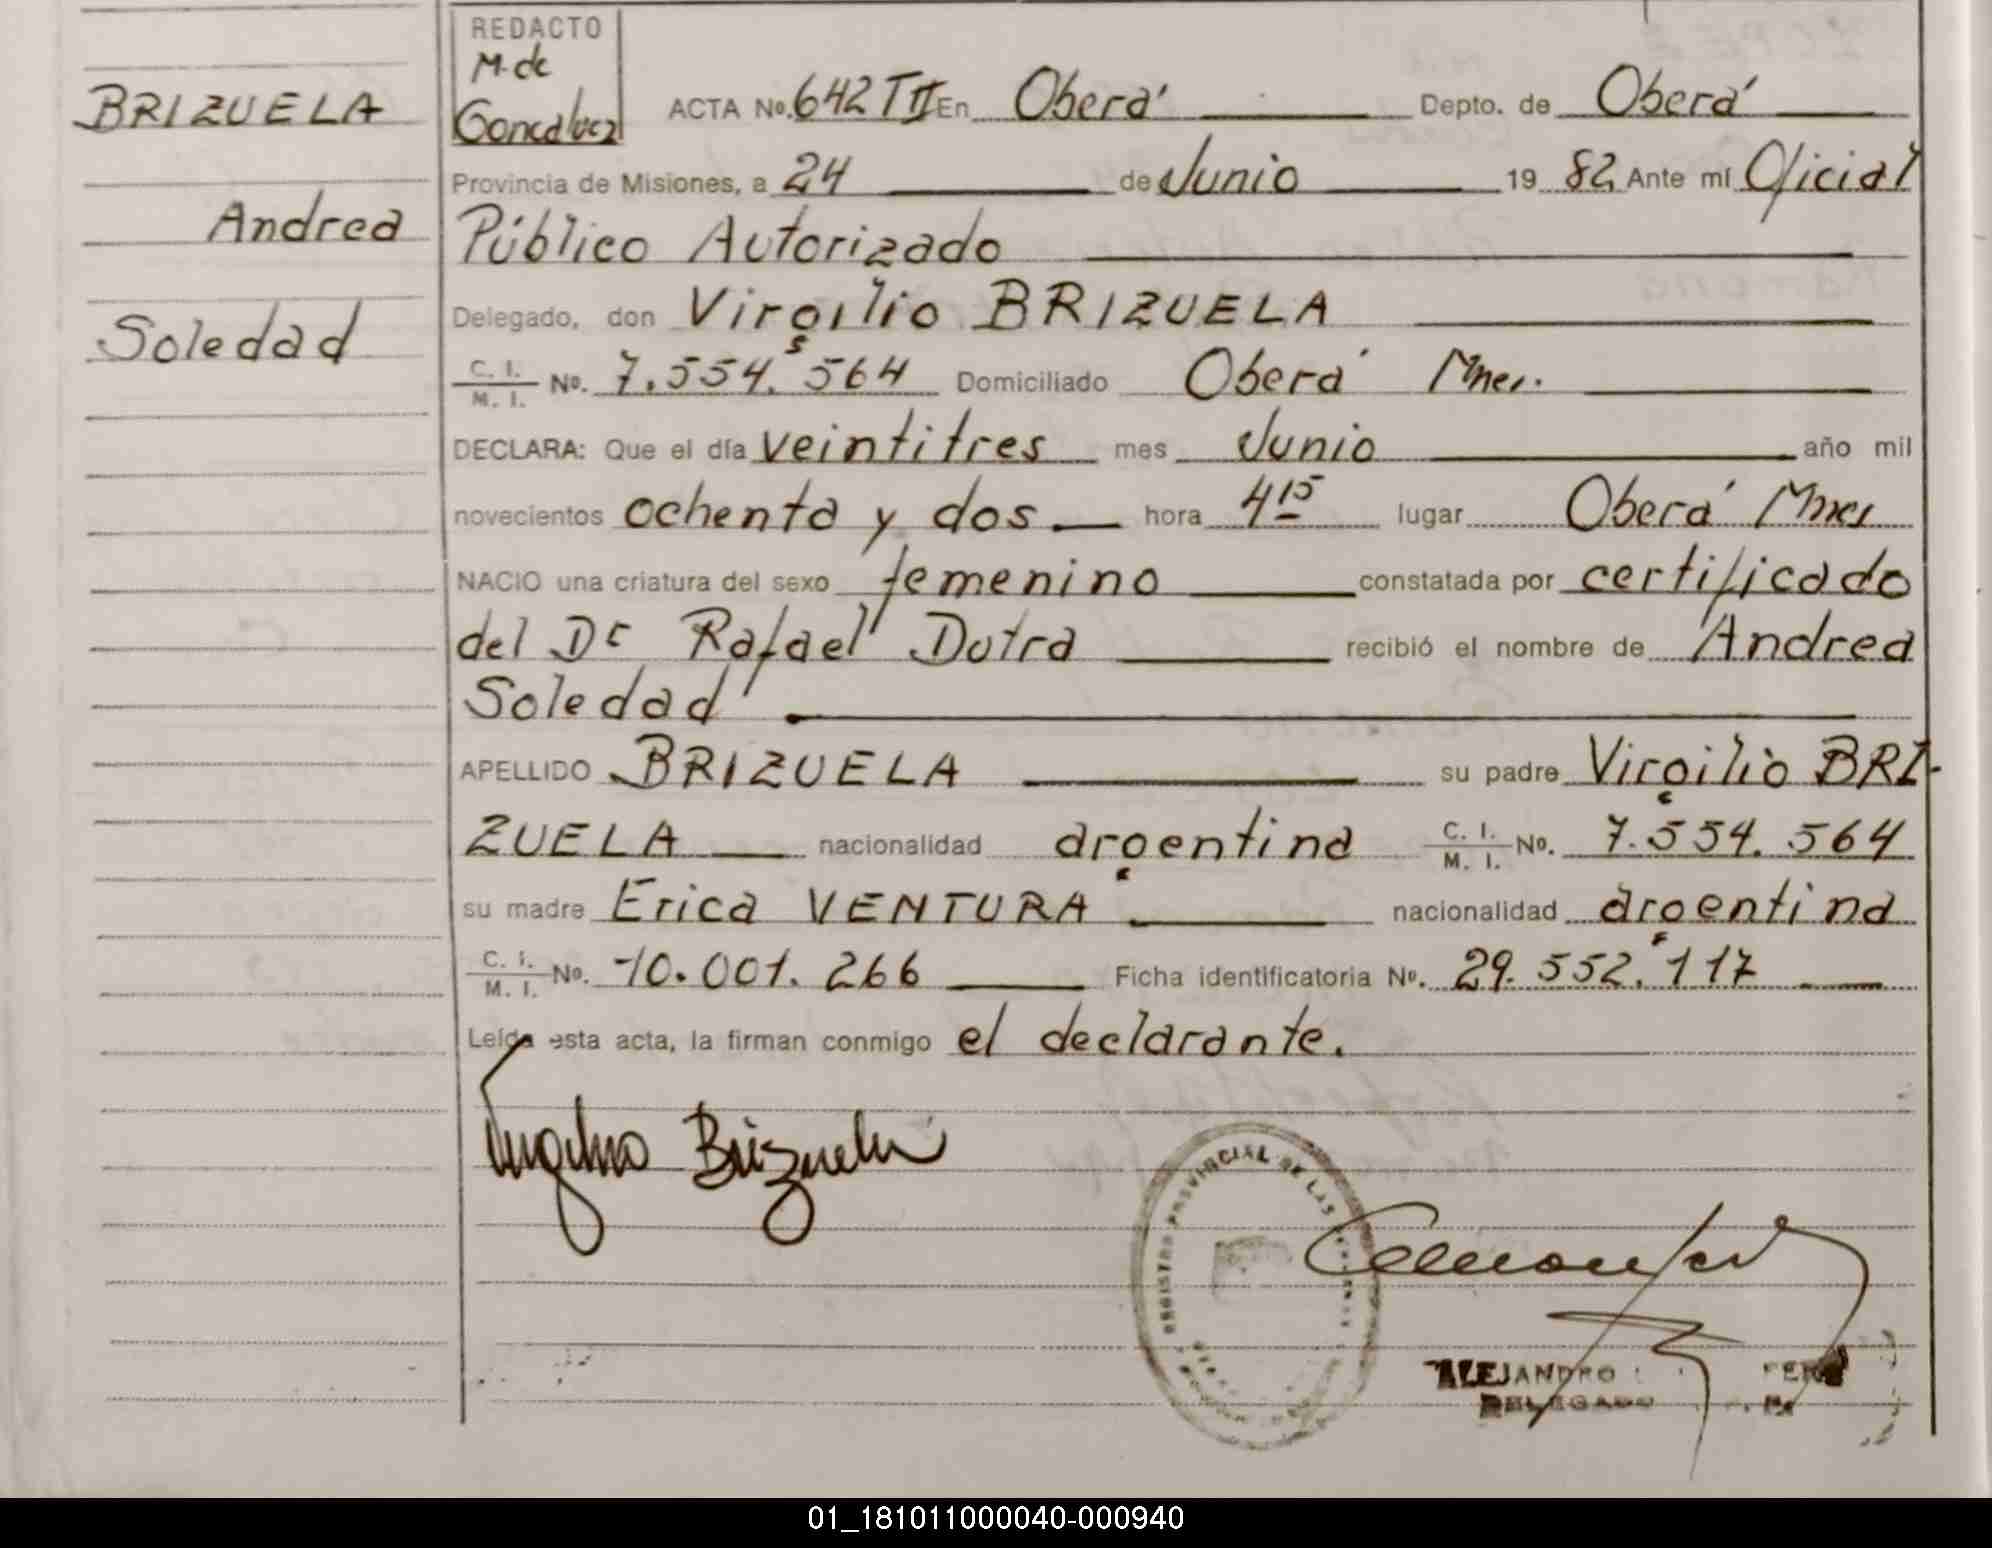 BRIZUELA
Andrea
Soledad
REDACTO
M. de
Goncalvez
ACTA No. 642 TII En Oberá Depto. de Oberá
Provincia de Misiones, a 24 de Junio 19 82 Ante mí Oficial
Público Autorizado
Delegado, don Virgilio BRIZUELA
C. I. / M. I. No. 7.554.564 Domiciliado Oberá Mnes.
DECLARA: Que el día veintitres mes Junio año mil
novecientos ochenta y dos hora 4 15 lugar Oberá Mnes
NACIO una criatura del sexo femenino constatada por certificado
del Dr Rafael Dutra recibió el nombre de Andrea
Soledad
APELLIDO BRIZUELA su padre Virgilio BRI-
ZUELA nacionalidad argentina C. I. / M. I. No. 7.554.564
su madre Erica VENTURA nacionalidad argentina
C. I. / M. I. No. 10.001.266 Ficha identificatoria No. 29.552.117
Leída esta acta, la firman conmigo el declarante.
Virgilio Brizuela
REGISTRO PROVINCIAL DE LAS
ALEJANDRO
DELEGADO
01_181011000040-000940